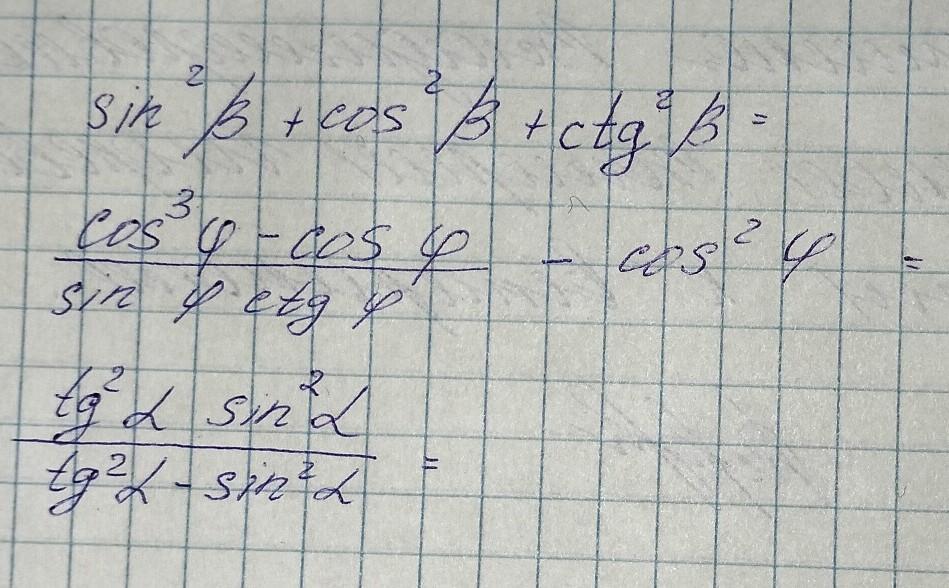 sin² β + cos² β + ctg² β =
cos³ φ - cos φ / sin φ ctg φ - cos² φ =
tg² α sin² α / tg² α - sin² α =